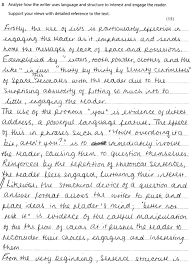 3 Analyse how the writer uses language and structure to interest and engage the reader.
Support your views with detailed reference to the text.
(15)
Firstly, the use of lists is particularly effective in
engaging the reader as it emphasises and sends
home the messages of lack of space and possessions.
Exemplified by "… tooth powder, clothes and the
like" is … "thirty by thirty by seventy centimetres"
of space, … the reader due to the
surprising absurdity of fitting so much into so
little, engaging the reader.
The use of the pronoun "you" is evidence of direct
address, a powerful language feature. The effect
of this in phrases such as "You're overdoing it a
bit, aren't you?" is to immediately involve
the reader, causing them to question themselves.
Reinforced by the repetition of rhetorical sentences,
the reader feels engaged, furthering their interest.
Likewise, the structural device of a question and
answer format allows the writer to push and
place ideas in the reader's mind; "better
not" is evidence of the careful manipulation
of the flow of ideas as it pushes the reader to
reconsider their choices, engaging and interesting
them.
From the very beginning, general structure is